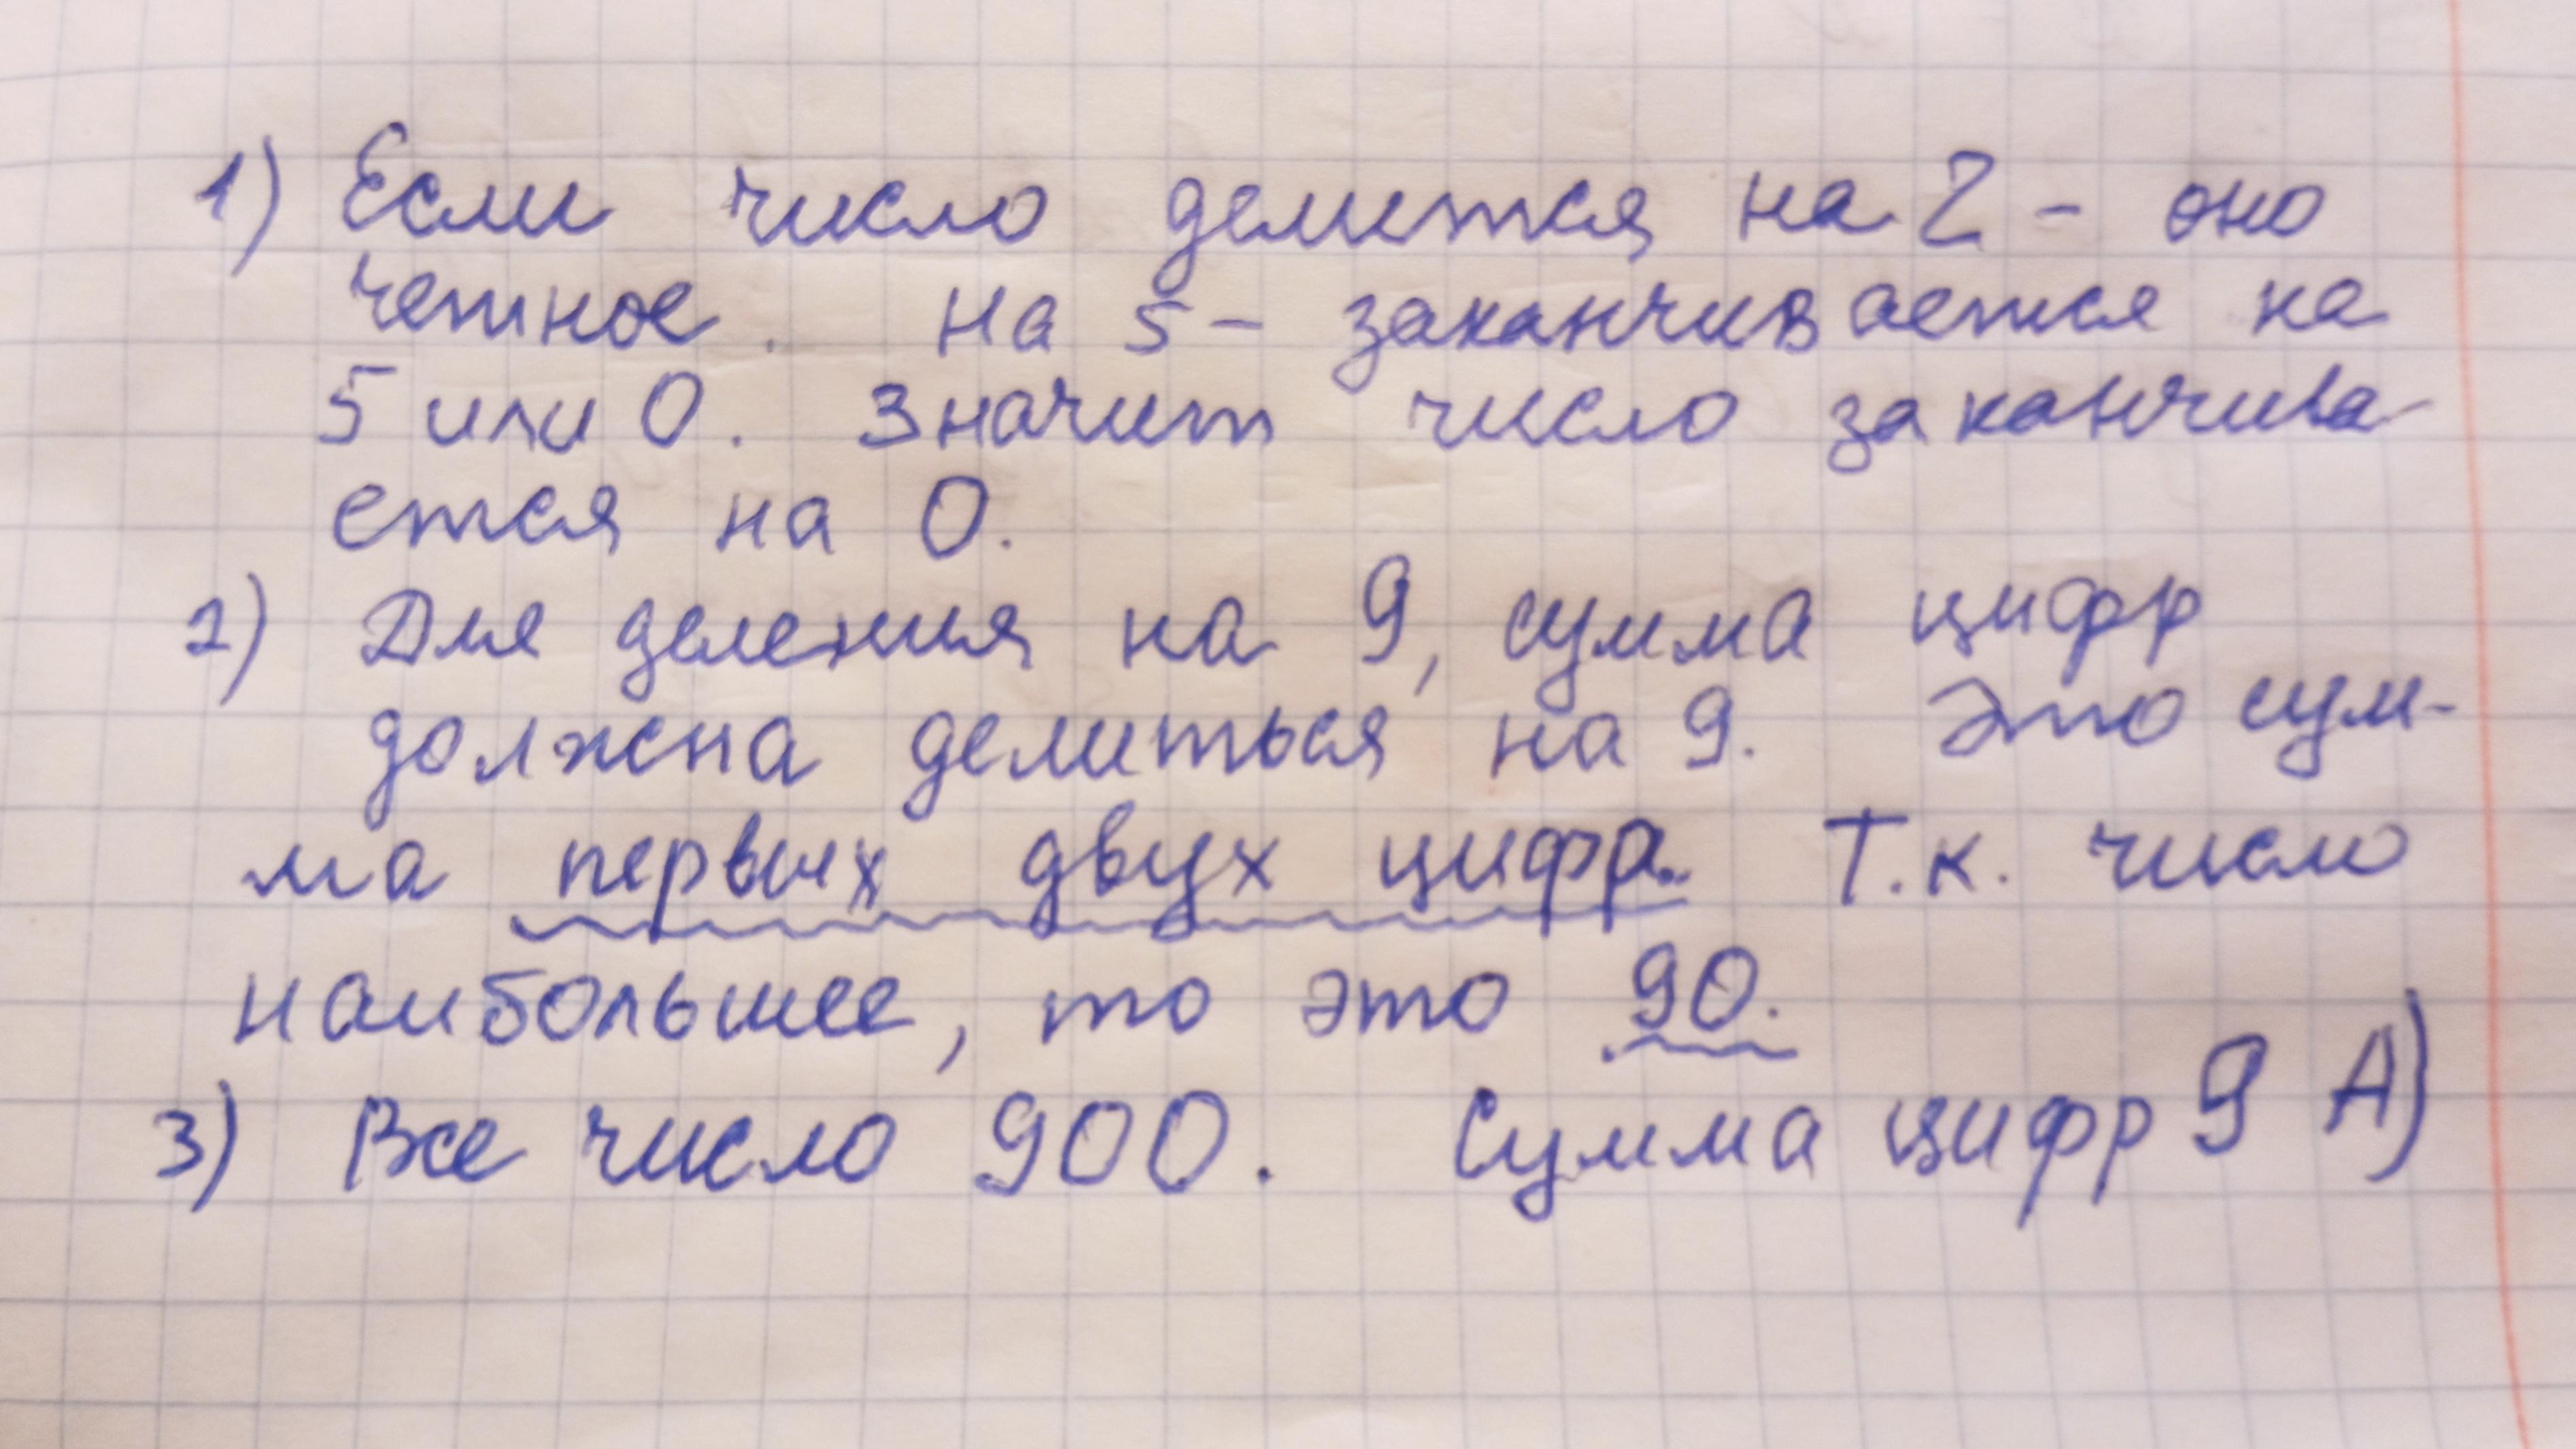 1) Если число делится на 2 - оно
четное. На 5 - заканчивается на
5 или 0. Значит число заканчива-
ется на 0.
2) Для деления на 9, сумма цифр
должна делиться на 9. Это сум-
ма первых двух цифр. Т.к. число
наибольшее, то это 90.
3) Все число 900. Сумма цифр 9 А)